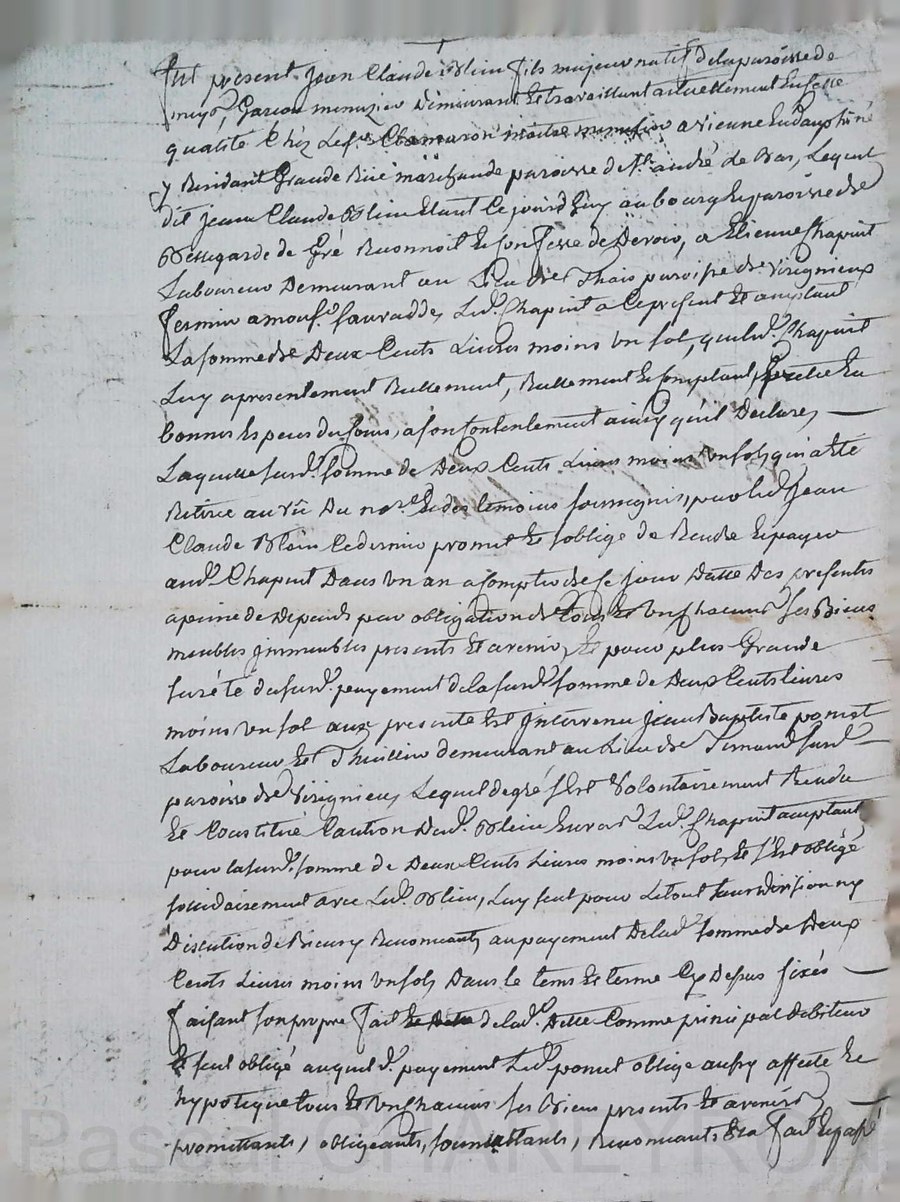 fut present Jean Claude Blein fils majeur natif de la paroisse de
garcon menuzier demeurant et travaillant actuellement en cette
qualité chez le sr maitre menusier a vienne en dauphiné
y Residant Grande Rüe marchande paroisse de st. andré le bas, Lequel
dit jean Claude Blein Etant ce jourd'huy au bourg et paroisse de
Bellegarde de Gré Reconnoit et confesse de Devoir, a Etienne Chapuit
Laboureur Demeurant au Lieu de Thais paroisse de virignieux
fermier a mons.r Ludt. Chapuit a ce present et acceptant
La somme de Deux Cents Livres moins un sol, que ludt. Chapuit
Luy a presentement Reellement, Reellement et comptant en
bonnes Especes du cours, a son contentement ainsy qu'il Declare,
Laquelle surdt. somme de Deux Cents Livres moins un sol, qui a été
Retirée au vû du nore. et des temoins soussignés, par led. Jean
Claude Blein Ce dernier promet et s'oblige de Rendre et payer
audt. Chapuit Dans un an a compter de ce jour Datte Des presentes
a peine de Depends par obligation de tous et un chacuns ses Biens
meubles jmmeubles presents et avenir, Et pour plus Grande
sureté du surdt. payement de la surdt. somme de Deux Cents Livres
moins un sol aux presente Est jntervenu Jean Baptiste poncet
Laboureur et demeurant au Lieu de surdt.
paroisse de virignieu, Lequel de gré s'est Volontairement Rendu
et Constitué Caution dudt. Blein Envers Ludt. Chapuit acceptant
pour la surdt. somme de Deux Cents Livres moins un sol, Et s'Est obligé
solidairement avec Ludt. Blein, Luy seul pour Le tout sans division ny
Discution de Biens y Renonceant, au payement De ladt. somme de Deux
Cents Livres moins un sol, Dans le tems et terme Cy Depus fixés
faisant son propre fait de ladt. Dette Comme principal debiteur
et seul obligé auquel dt. payement Ludt. poncet oblige aussy affecte et
hypoteque tous et un chacuns ses Biens presents et avenirs
promettants, obligeants, soumettants, Renonceants &a fait et passé
Pascal CHARLEYRON